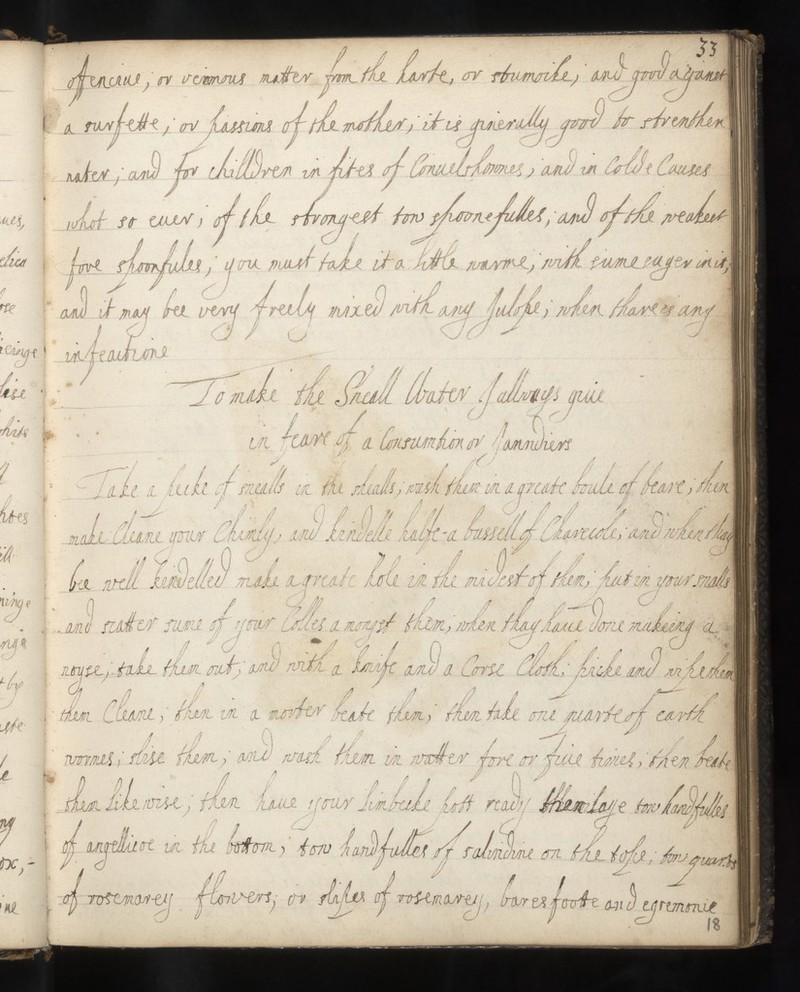 33
offenciue, or veinnous matter from the harte, or stumoike, and good aganst
a surfette, or passions of the mother, it is ginerally good to strenthen
nater, and for chilldren in fites of Conuelshonnes, and in Colde Causes
whot so euer, of the strongest tow spoonefulles, and of the weakest
fore spoonfules, you must take it a little warme, with sume suger in it,
and it may bee very freely mixed with any Julope, when thare is any
infeactione
To make the Sneall Water I allways giue
in feare of a Consumtion or Janndiers
Take a pecke of snealls in the shealls, wash them in a greate boule of beare, then
make Cleane your Chimly, and kendelle halfe-a bussell of Charecole, and when thay
bee well kendelled make a greate hole in the midest of them, put in your snalls
and scatter sume of your Colles amongst them, when thay haue done makeing a
noyse, take them out, and with a knife and a Corse Cloth, picke and wipe them
them Cleane, then in a morter beate them, then take one quarte of earth
wormes, slise them, and wash them in watter fore or fiue times, then beate
them likewise, then haue your limbecke pott ready then laye tow handfulles
of angellicoe in the bottom, tow handfulles of salindine on the tope, tow quarts
of rosemarey flowers, or slipes of rosemarey, bares foote and egremonie
18